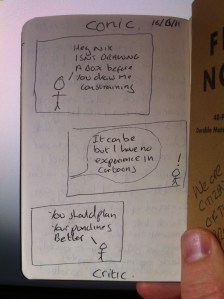 Comic.
Hey Nik
ISN'T DRAWING
A BOX before
You draw me
constraining
It can be
but I have no
experience in
cartoons
You should plan
Your punclines
Better
Critic.
F
NO